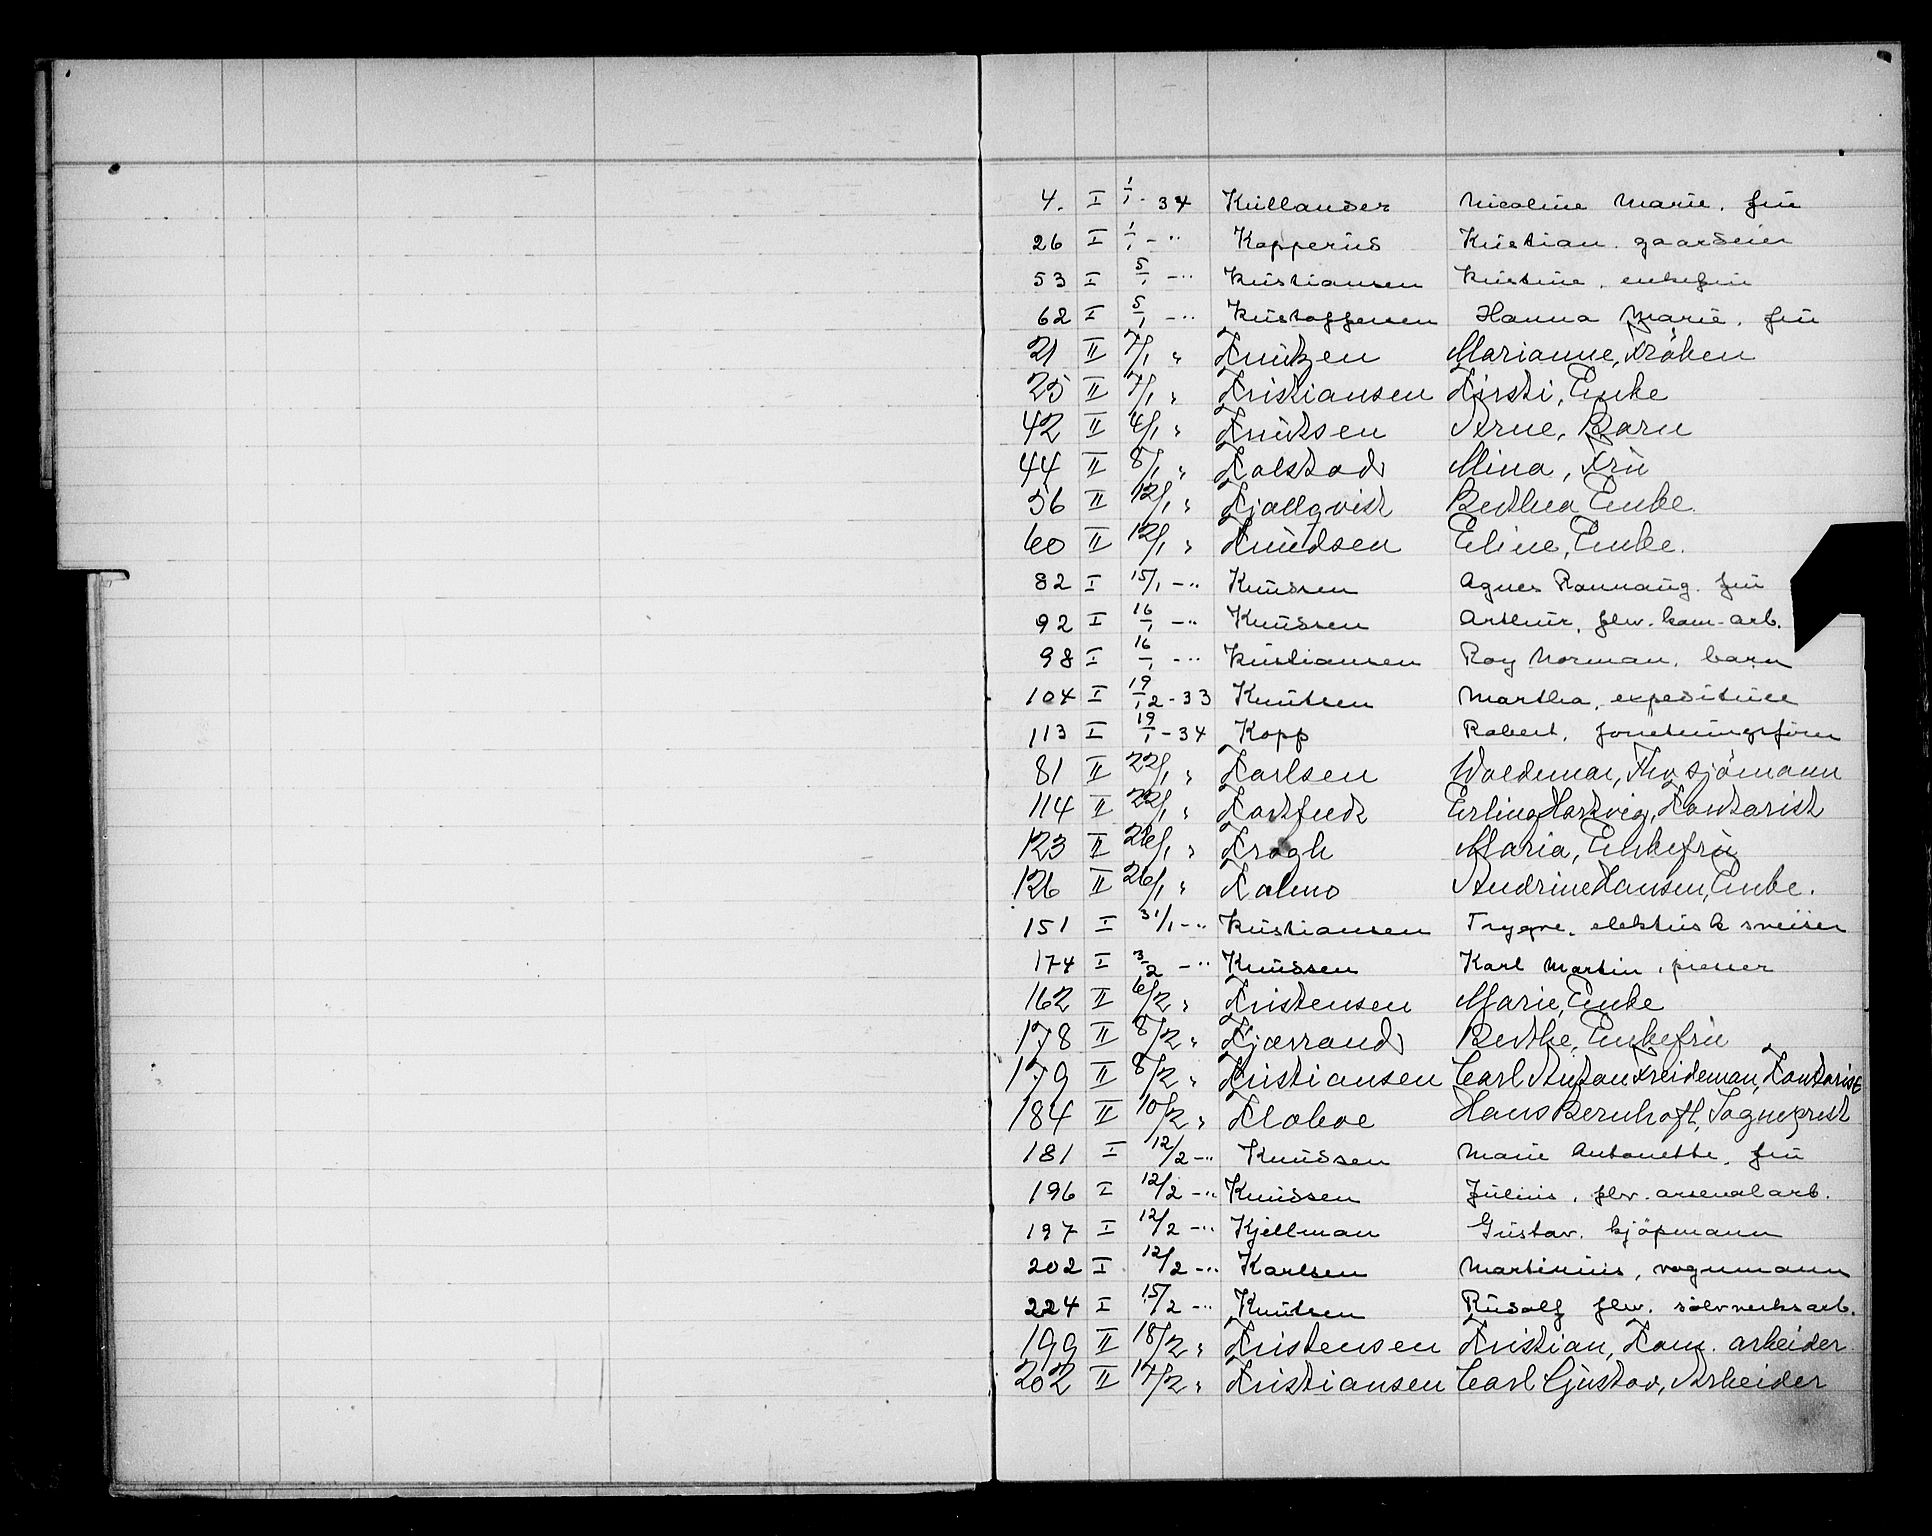 4. I 1/1 - 34 Krillander Nicoline Marie. frü
26 I 1/1 - " Kopperüs Kristian. gaardeier
53 I 5/1 - " Kristiansen Kristine. enkefrü
62 I 5/1 - " Kristoffersen Hanna Marie. frü
21 II 7/1 " Knützen Marianne, Frøken
25 II 7/1 " Kristiansen Kirsti, Enke
42 II 4/1 " Knütsen Arne, Barn
44 II 8/1 " Kolstad Mina, Frü
56 II 12/1 " Kjällqvist Berthea Enke
60 II 12/1 " Knüdsen Eline, Enke.
82 I 15/1 - " Knüdsen Agnes Rannaug. frü
92 I 16/1 - " Knüdsen Arthur, flw. kom-arb.
98 I 16/1 - " Kristiansen Roy Norman. barn
104 I 19/12 - 33 Knütsen Martha, expeditrice
113 I 19/1 - 34 Kopp Robert. forretningsfører
81 II 22/1 " Karlsen Waldemar, Fhv sjömann
114 II 22/1 " Kortfedt Erling Hartvig, Kontorist
123 II 26/1 " Krogh Maria, Enkefrü
126 II 26/1 " Kolmo Andrine Hansen, Enke.
151 I 31/1 - " Kristiansen Trygve. elektrisk sveiser
174 I 3/2 - " Knüdsen Karl Martin, presser
162 II 6/2 " Kristensen Marie, Enke
178 II 8/2 " Kjærrand Berthe, Enkefrü
179 II 8/2 " Kristiansen Carl Anton Freideman, Kontorist
184 II 10/2 " Kloboe Hans Bernhoft, Sogneprest
181 I 12/2 - " Knüdsen Marie Antonette. frü
196 I 12/2 - " Knüdsen Jülius, flw. arsenalarb.
197 I 12/2 - " Kjellman Güstav. kjöpmann
202 I 12/2 - " Karlsen Martinius, vognmann
224 I 15/2 - " Knütsen Rüdolf flw. sølvverksarb.
199 II 18/2 " Kristensen Kristian, Kom. arbeider
202 II 17/2 " Kristiansen Carl Gustav, Arbeider